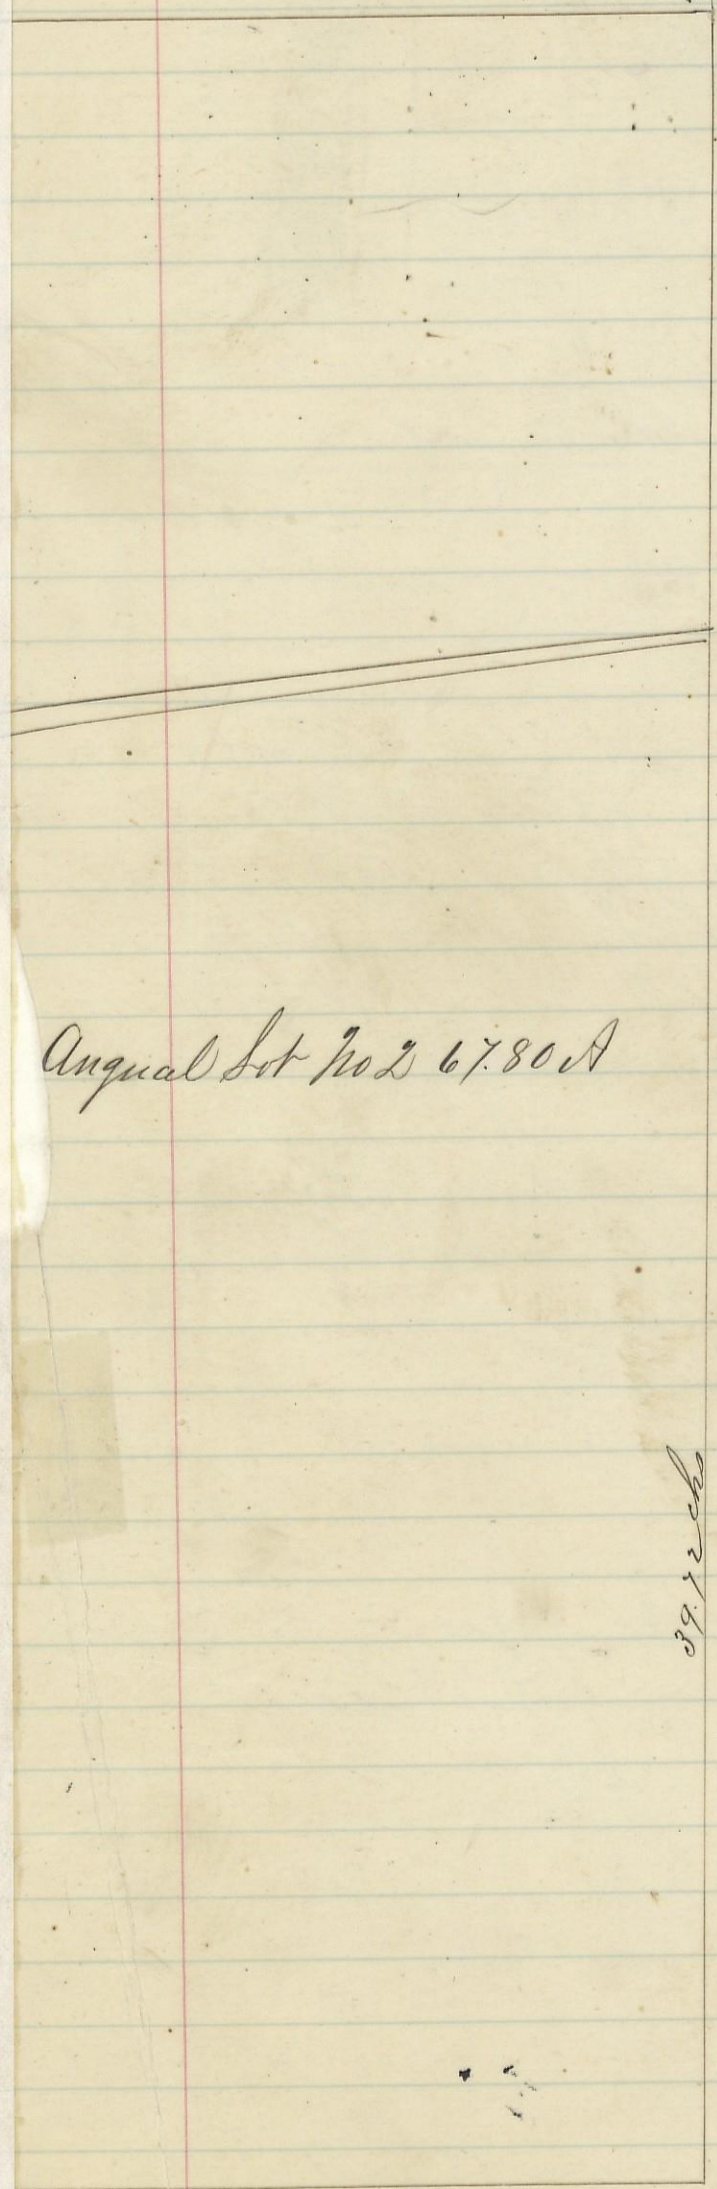 Angual Lot No 2 67.80 A
39.72 chs